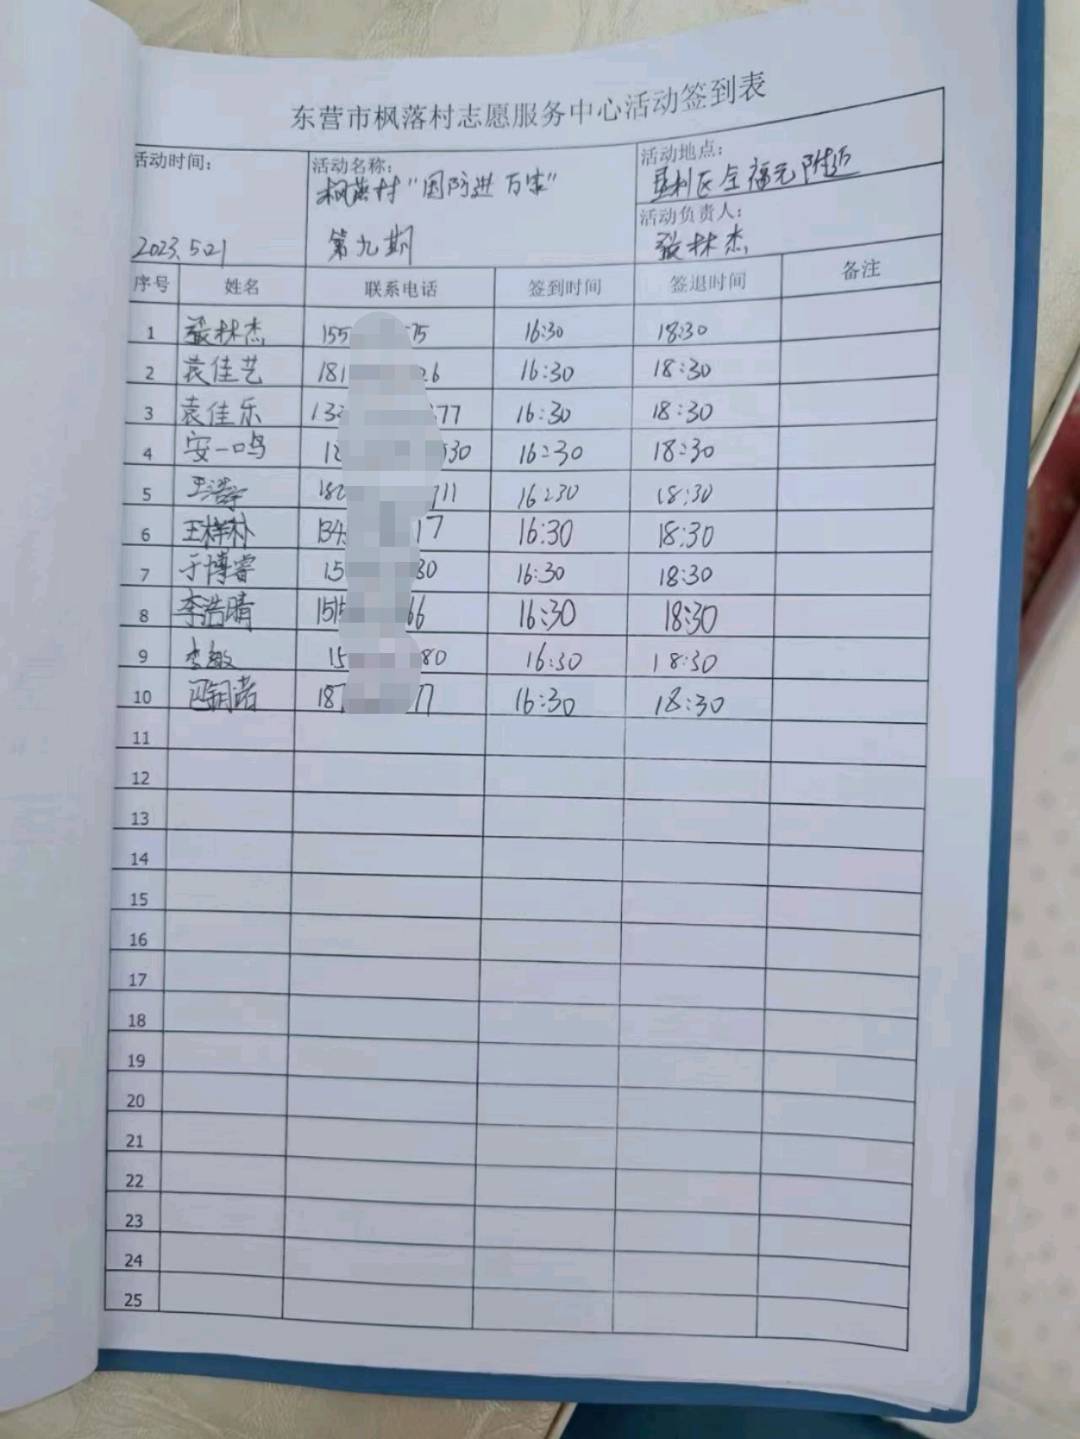 东营市枫落村志愿服务中心活动签到表
活动时间: 活动名称: 活动地点:
枫落村“国防进万家” 垦利区全福元附近
活动负责人:
2023.5.21 第九期 张林杰
序号 姓名 联系电话 签到时间 签退时间 备注
1 张林杰 155 575 16:30 18:30
2 袁佳艺 181 26 16:30 18:30
3 袁佳乐 133 77 16:30 18:30
4 安一鸣 18 530 16:30 18:30
5 王浩 182 711 16:30 18:30
6 王梓朴 134 17 16:30 18:30
7 于博睿 15 30 16:30 18:30
8 李浩晴 1515 66 16:30 18:30
9 李敏 15 80 16:30 18:30
10 187 77 16:30 18:30
11
12
13
14
15
16
17
18
19
20
21
22
23
24
25